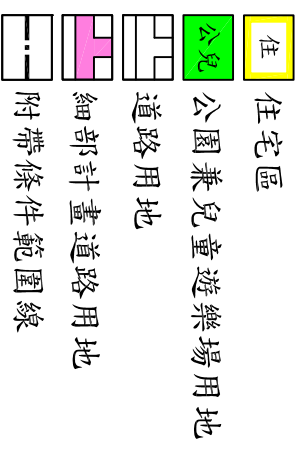 住 住宅區
公兒 公園兼兒童遊樂場用地
道路用地
細部計畫道路用地
附帶條件範圍線